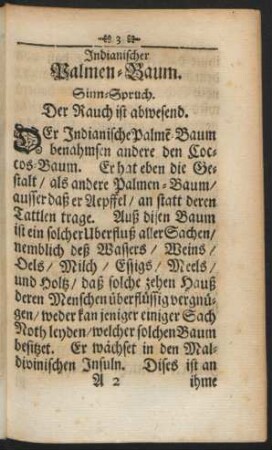 3
Indianischer
Palmen-Baum.
Sinn-Spruch.
Der Rauch ist abwesend.
DEr Indianische Palmẽ-Baum
benahmsen andere den Coc-
tos-Baum. Er hat eben die Ge-
stalt / als andere Palmen-Baum /
ausser daß er Aepffel / an statt deren
Tattlen trage. Auß disen Baum
ist ein solcher Uberfluß aller Sachen /
nemblich deß Wassers / Weins /
Oels / Milch / Essigs / Meels /
und Holtz / daß solche zehen Hauß
deren Menschen überflüssig vergnü-
gen / weder kan jeniger einiger Sach
Noth leyden / welcher solchen Baum
besitzet. Er wächset in den Mal-
divinischen Insuln. Dises ist an
A 2 ihme